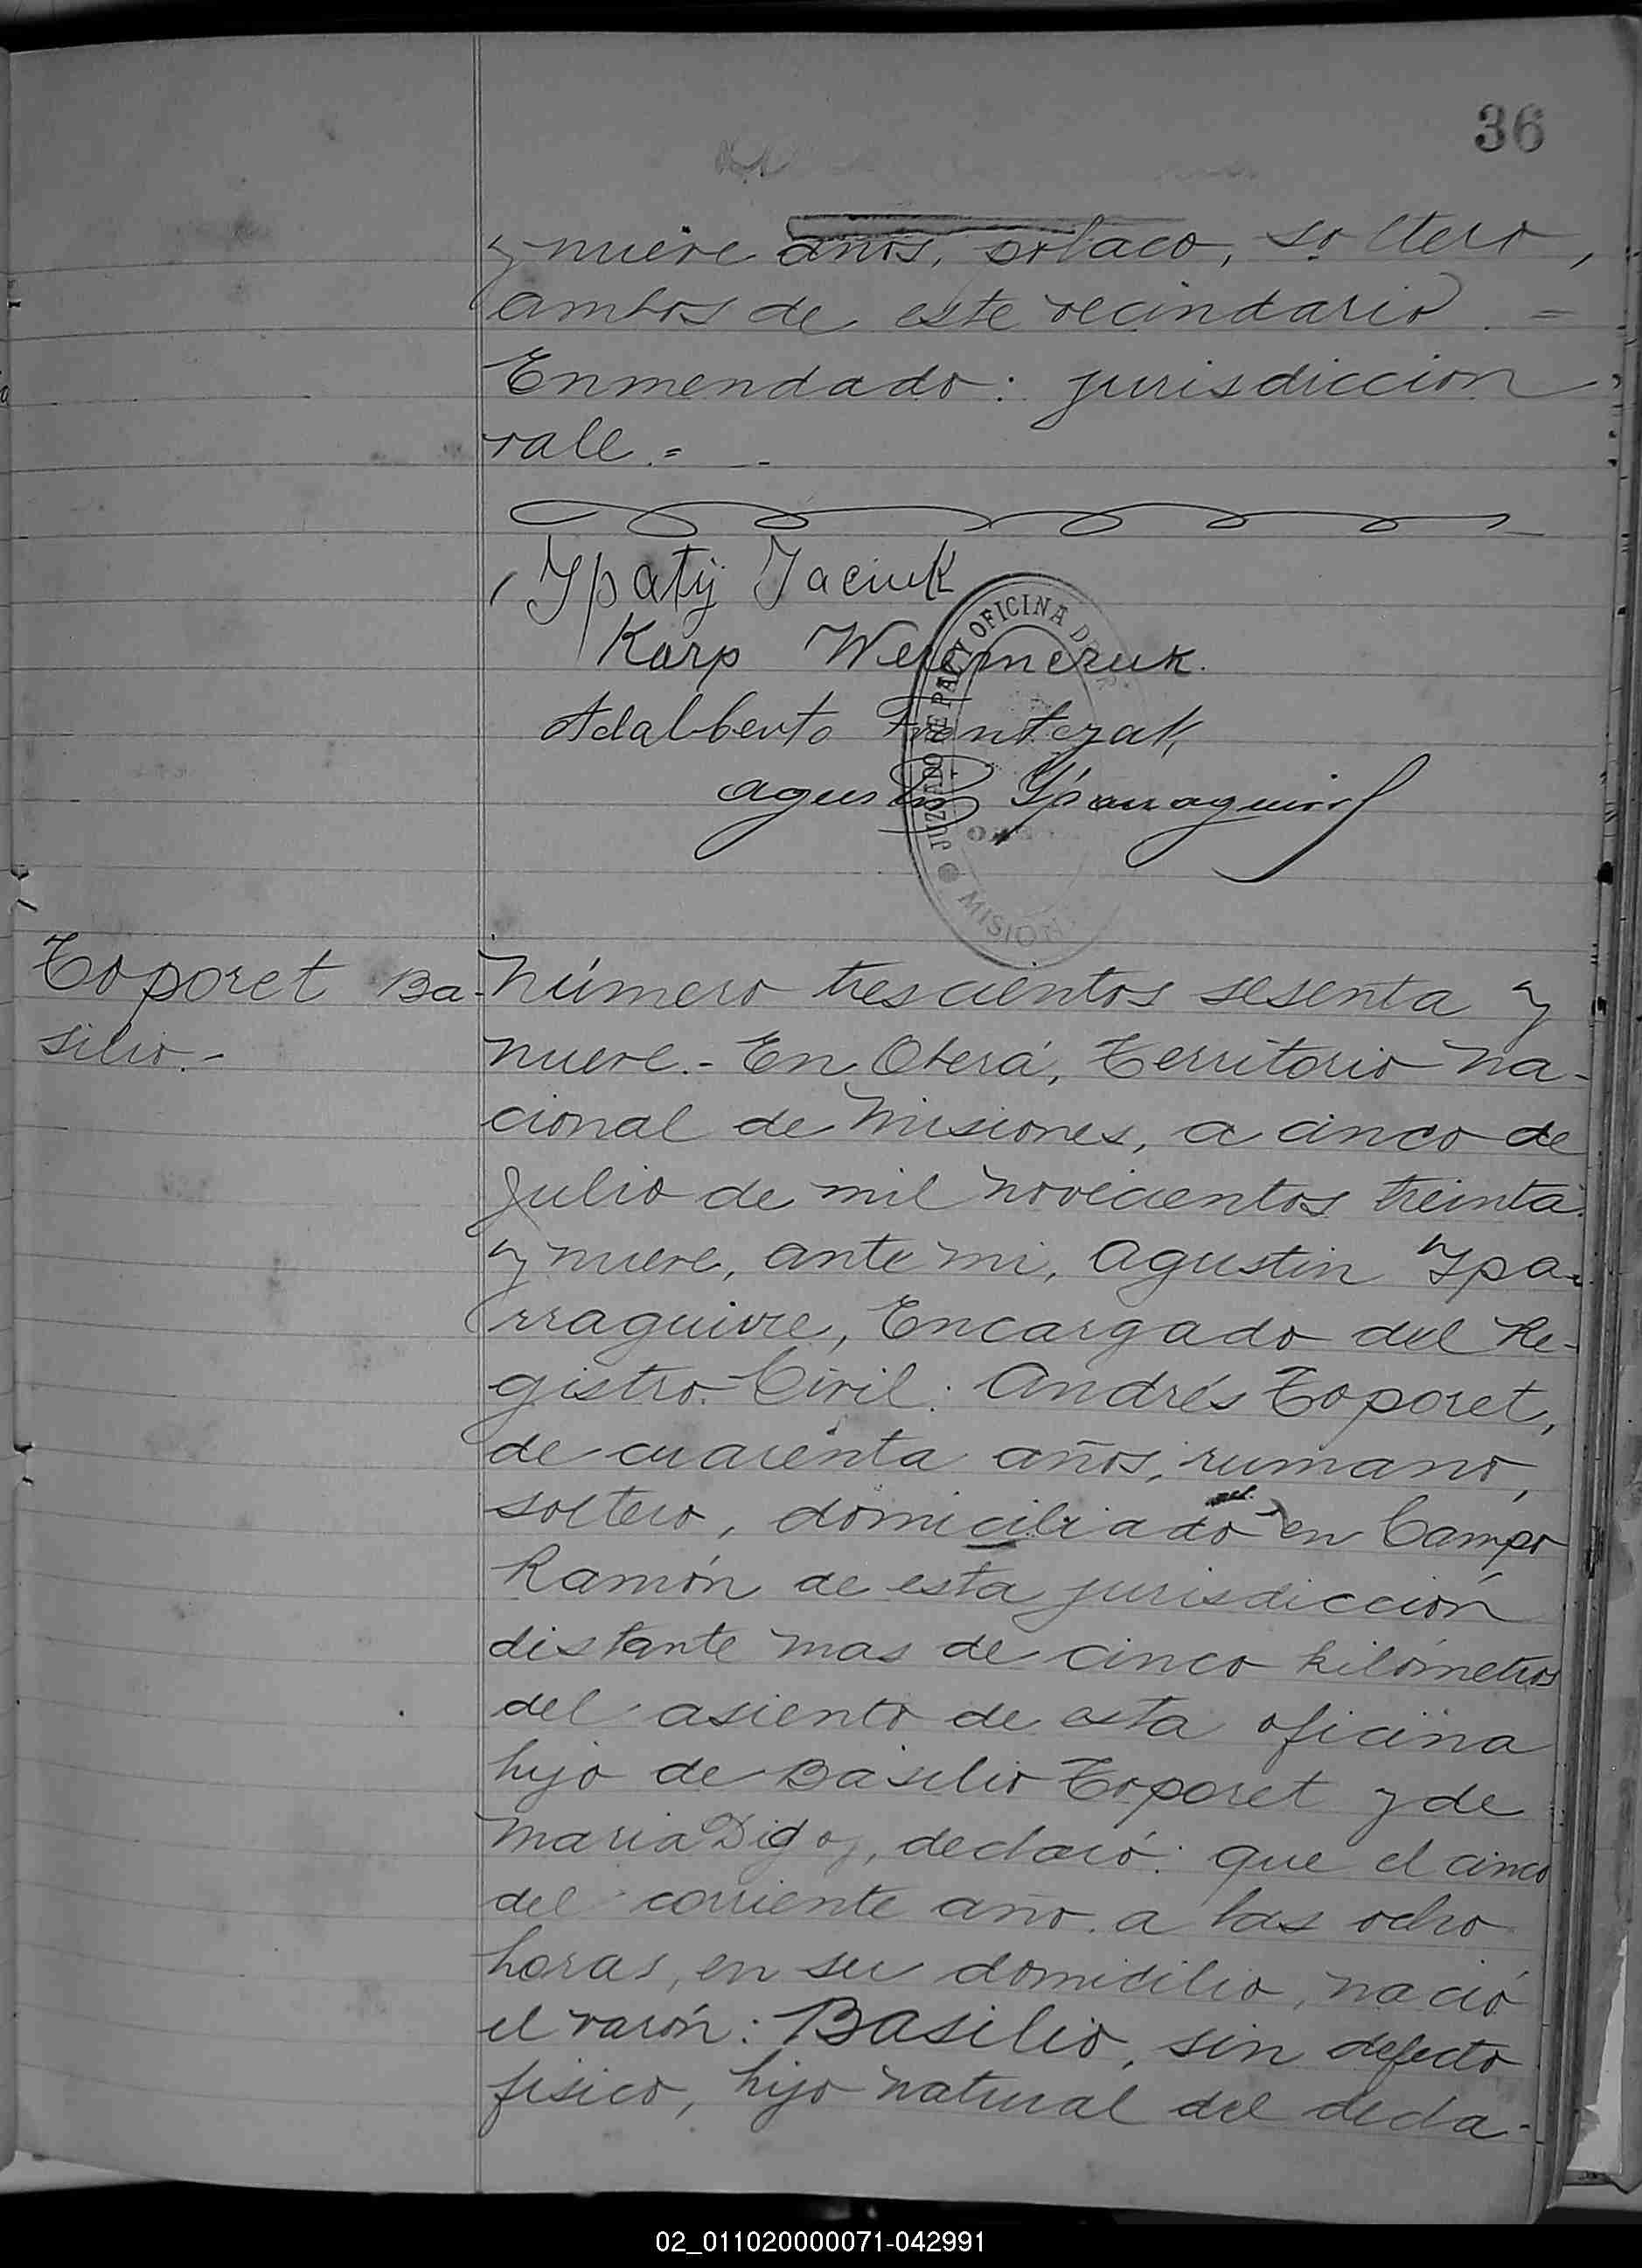 36
y nueve años, polaco, soltero,
ambos de este vecindario. =
Enmendado: jurisdiccion
vale. = -
Ypatij Jaciuk
Karp Weremczuk.
Adalberto Frontczak
Agustin Yparraguirre
JUZGADO DE PAZ Y OFICINA DEL R
MISION
Toporet Ba-
silio.-
Número trescientos sesenta y
nueve.- En Oberá, Territorio Na-
cional de Misiones, a cinco de
Julio de mil novecientos treinta
y nueve, ante mi, Agustin Ypa-
rraguirre, Encargado del Re-
gistro Civil: Andrés Toporet,
de cuarenta años, rumano,
soltero, domiciliado en Campo
Ramón de esta jurisdicción
distante mas de cinco kilómetros
del asiento de esta oficina
hijo de Basilio Toporet y de
Maria Digoj, declaró: que el cinco
del corriente año a las ocho
horas, en su domicilio, nació
el varón: Basilio, sin defecto
fisico, hijo natural del decla-
02_011020000071-042991